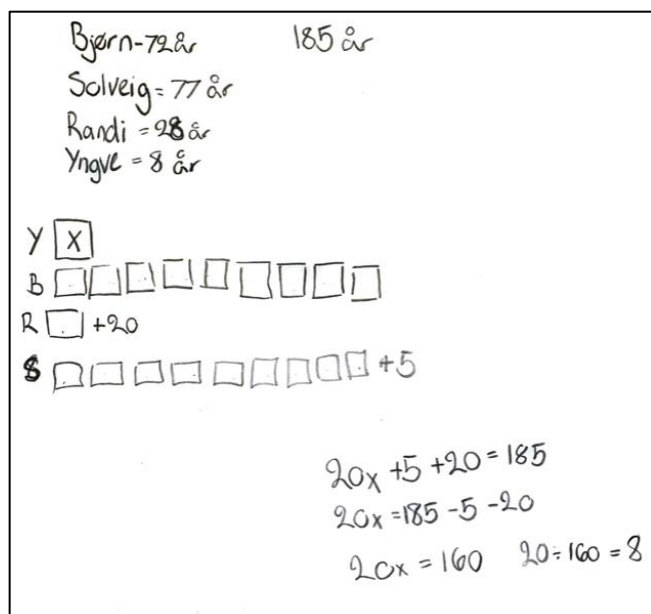 Bjørn-72år 185 år
Solveig=77 år
Randi = 28 år
Yngve = 8 år
Y X
B
R +20
S +5
20x +5 +20 = 185
20x = 185 - 5 - 20
20x = 160 20÷160 = 8